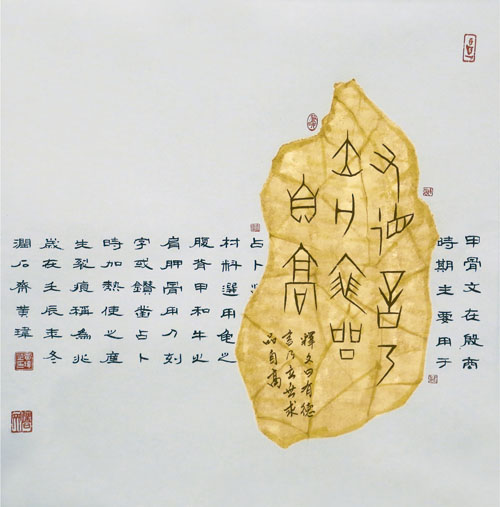 甲骨文在殷商
時期主要用于
又德乃
求品
自高
釋文曰有德
乃求
品自高
占卜
材料選用龜之
腹背甲和牛之
肩胛骨用刀刻
字或鑽凿占卜
時加熱使之產
生裂痕稱為兆
歲在壬辰年冬
潤石齋黃瑋